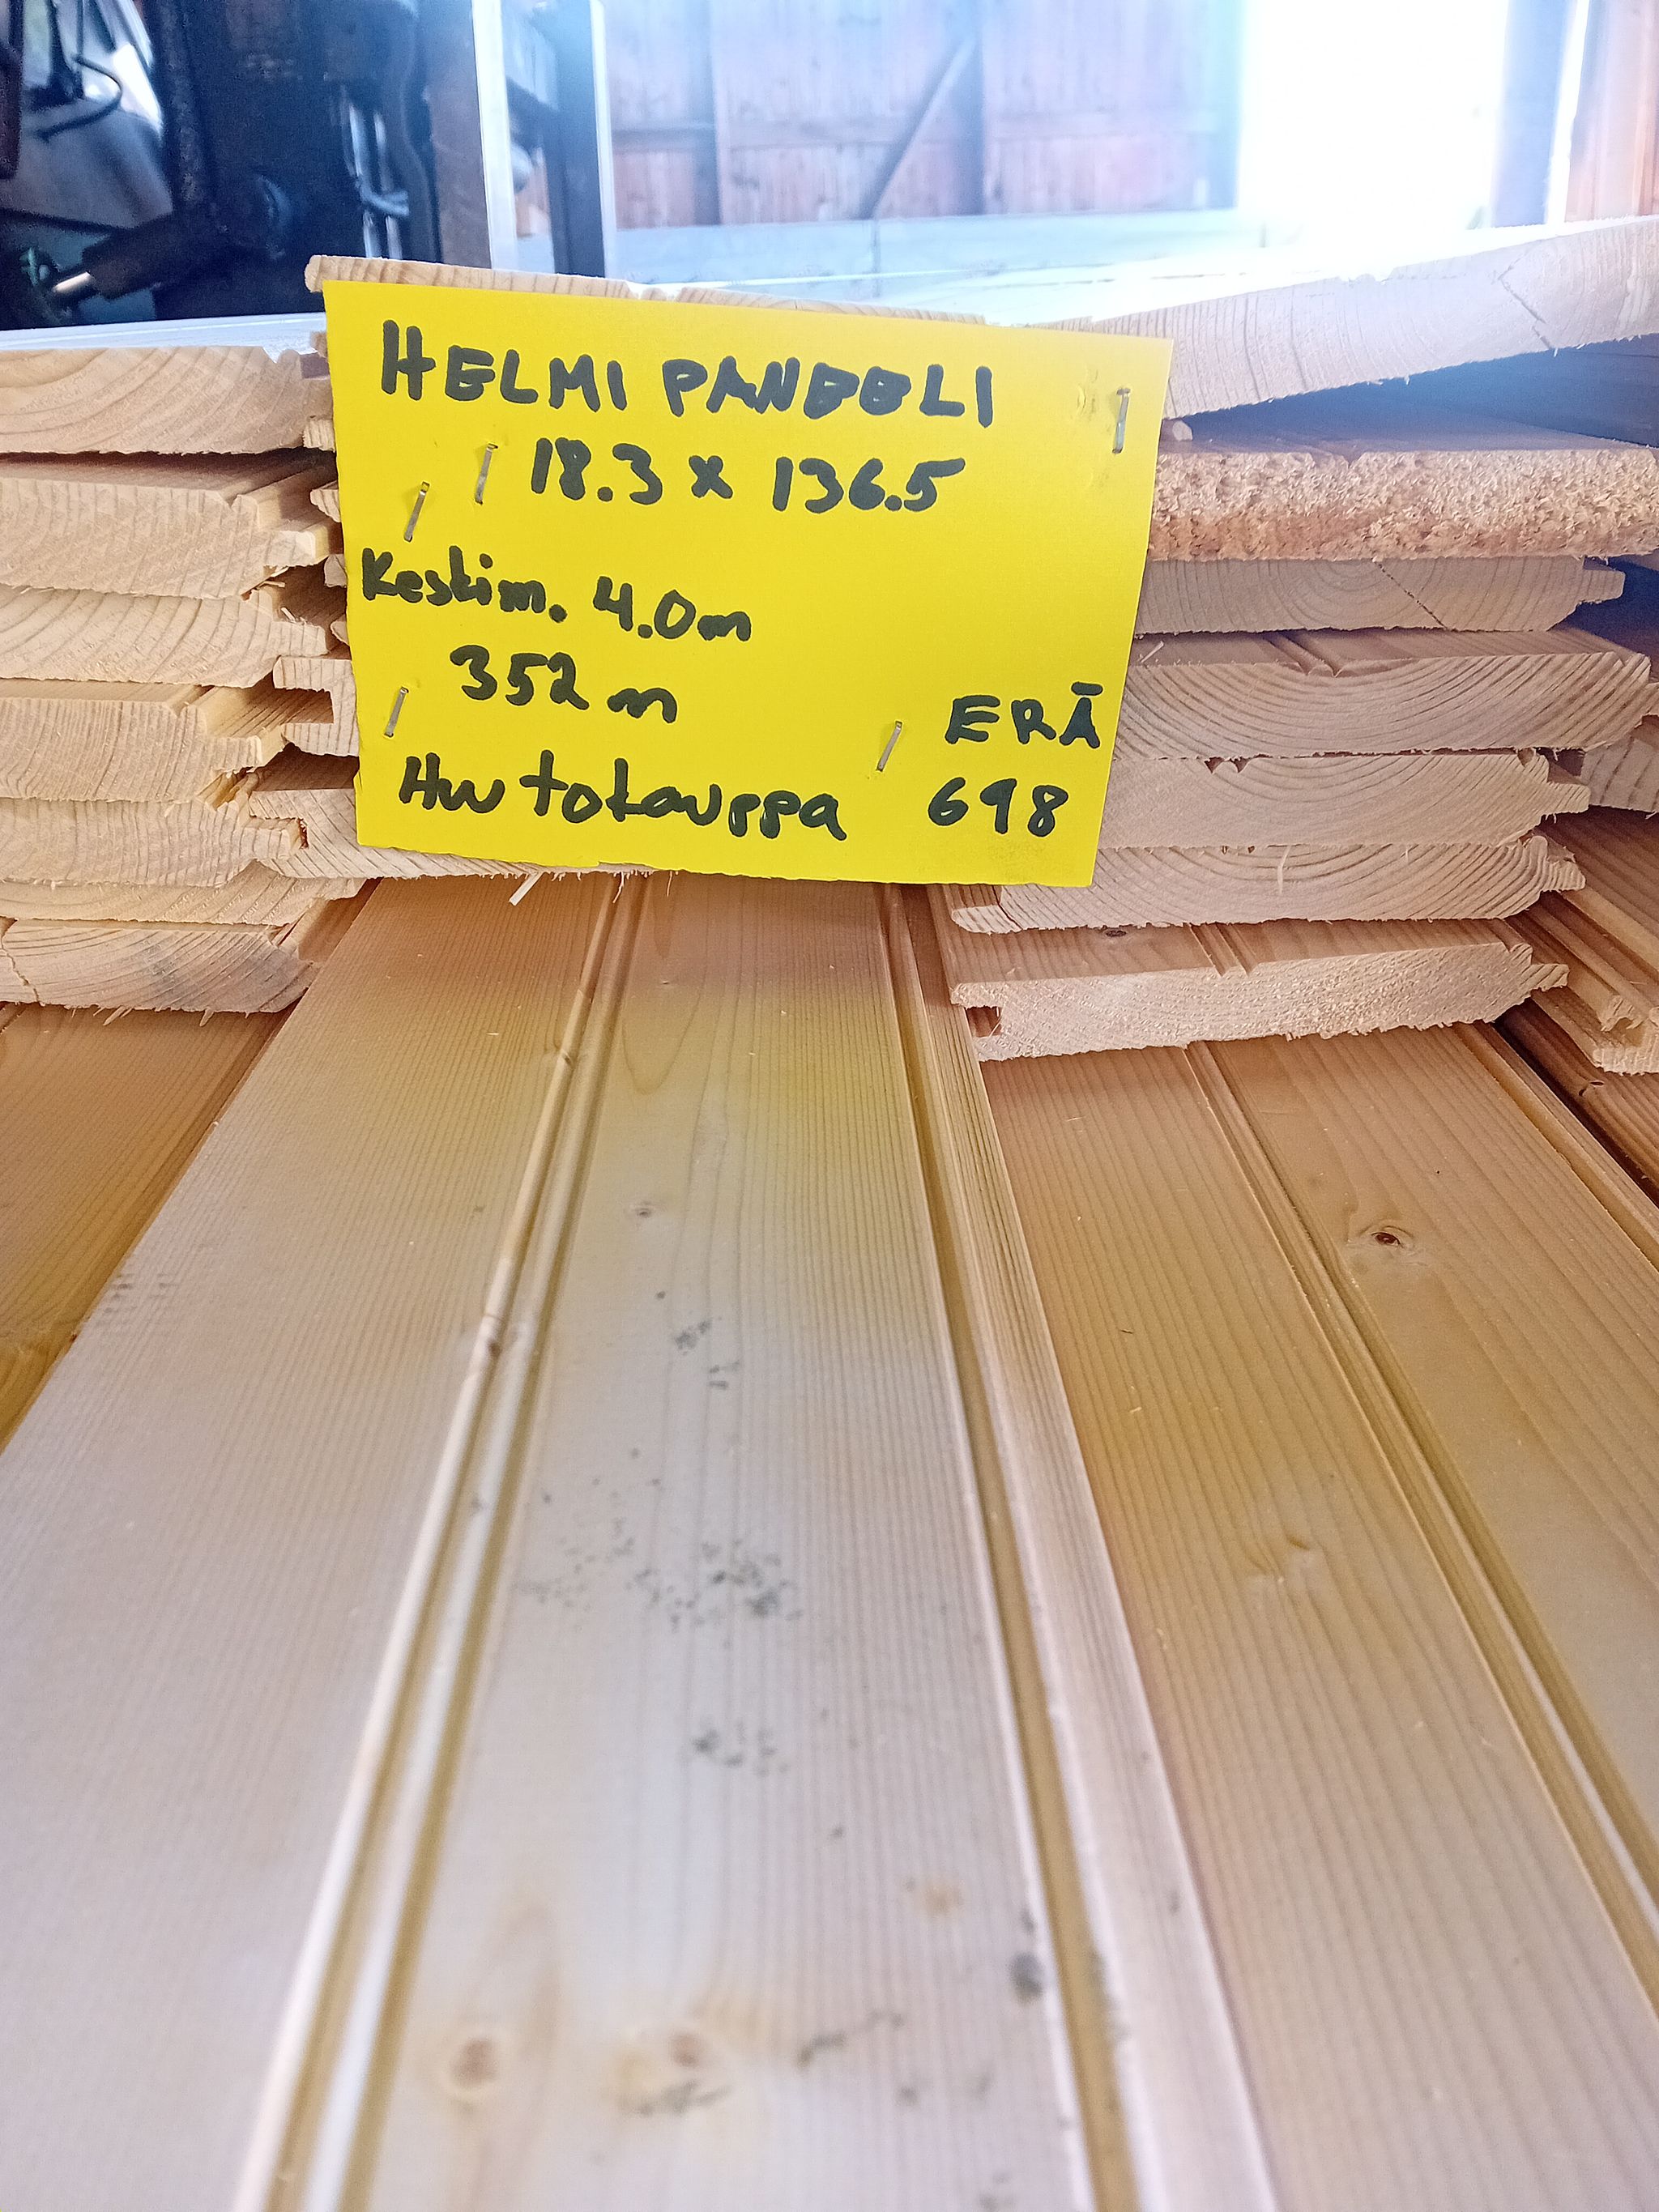 HELMI PANEELI
18.3 x 136.5
Keskim. 4.0m
352 m
ERÄ
Huutokauppa 698